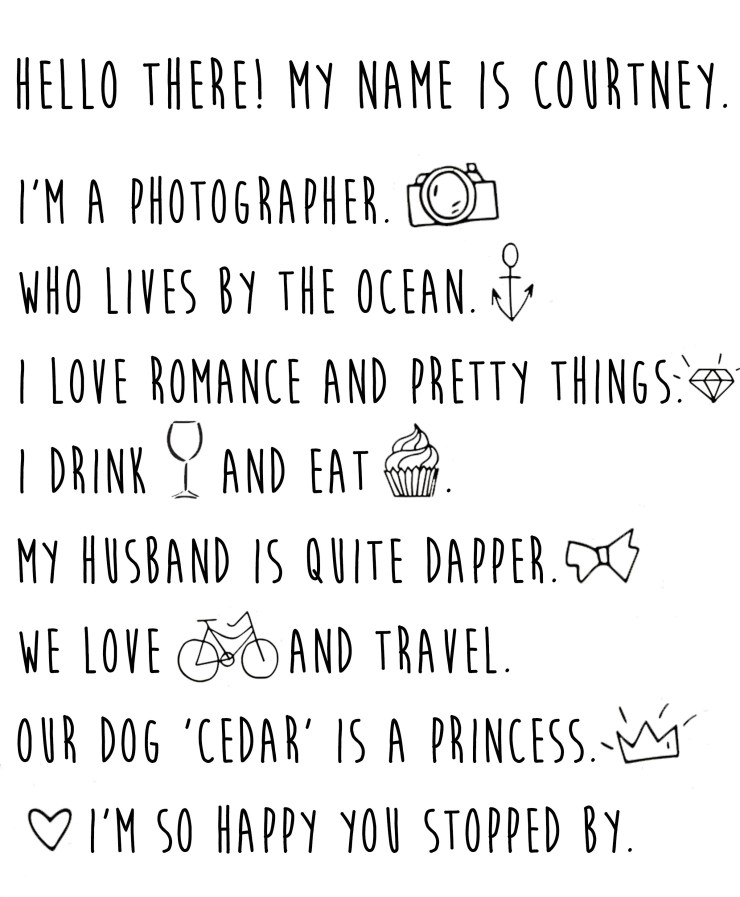 HELLO THERE! MY NAME IS COURTNEY.
I'M A PHOTOGRAPHER.
WHO LIVES BY THE OCEAN.
I LOVE ROMANCE AND PRETTY THINGS.
I DRINK AND EAT .
MY HUSBAND IS QUITE DAPPER.
WE LOVE AND TRAVEL.
OUR DOG 'CEDAR' IS A PRINCESS.
I'M SO HAPPY YOU STOPPED BY.